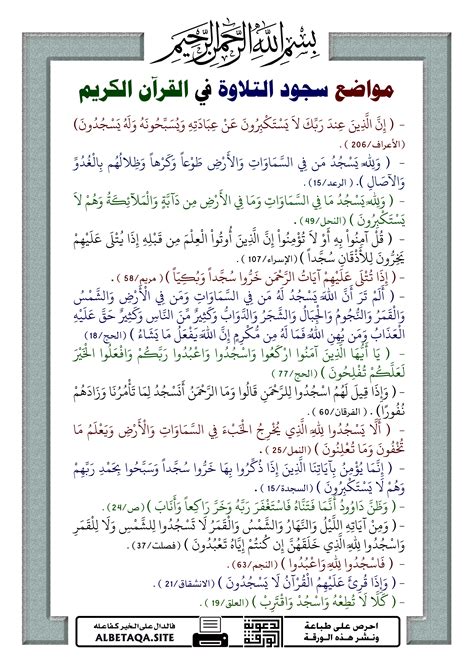 بسم الله الرحمن الرحيم
مواضع سجود التلاوة في القرآن الكريم
- ( إِنَّ الَّذِينَ عِندَ رَبِّكَ لاَ يَسْتَكْبِرُونَ عَنْ عِبَادَتِهِ وَيُسَبِّحُونَهُ وَلَهُ يَسْجُدُونَ)
(الأعراف/206 ) .
- ( وَلِلّهِ يَسْجُدُ مَن فِي السَّمَاوَاتِ وَالأَرْضِ طَوْعاً وَكَرْهاً وَظِلالُهُم بِالْغُدُوِّ
وَالآصَالِ ). ( الرعد/15) .
- ( وَلِلّهِ يَسْجُدُ مَا فِي السَّمَاوَاتِ وَمَا فِي الأَرْضِ مِن دَآبَّةٍ وَالْمَلآئِكَةُ وَهُمْ لاَ
يَسْتَكْبِرُونَ ) (النحل/49) .
- ( قُلْ آمِنُواْ بِهِ أَوْ لاَ تُؤْمِنُواْ إِنَّ الَّذِينَ أُوتُواْ الْعِلْمَ مِن قَبْلِهِ إِذَا يُتْلَى عَلَيْهِمْ
يَخِرُّونَ لِلأَذْقَانِ سُجَّداً ) (الإسراء/107) .
- ( إِذَا تُتْلَى عَلَيْهِمْ آيَاتُ الرَّحْمَن خَرُّوا سُجَّداً وَبُكِيّاً ) ( مريم/58 ) .
- ( أَلَمْ تَرَ أَنَّ اللَّهَ يَسْجُدُ لَهُ مَن فِي السَّمَاوَاتِ وَمَن فِي الْأَرْضِ وَالشَّمْسُ
وَالْقَمَرُ وَالنُّجُومُ وَالْجِبَالُ وَالشَّجَرُ وَالدَّوَابُّ وَكَثِيرٌ مِّنَ النَّاسِ وَكَثِيرٌ حَقَّ عَلَيْهِ
الْعَذَابُ وَمَن يُهِنِ اللَّهُ فَمَا لَهُ مِن مُّكْرِمٍ إِنَّ اللَّهَ يَفْعَلُ مَا يَشَاءُ ) (الحج/18)
- ( يَا أَيُّهَا الَّذِينَ آمَنُوا ارْكَعُوا وَاسْجُدُوا وَاعْبُدُوا رَبَّكُمْ وَافْعَلُوا الْخَيْرَ
لَعَلَّكُمْ تُفْلِحُونَ ) (الحج/77) .
- ( وَإِذَا قِيلَ لَهُمُ اسْجُدُوا لِلرَّحْمَنِ قَالُوا وَمَا الرَّحْمَنُ أَنَسْجُدُ لِمَا تَأْمُرُنَا وَزَادَهُمْ
نُفُورًا) . ( الفرقان/60 ) .
- ( أَلَّا يَسْجُدُوا لِلَّهِ الَّذِي يُخْرِجُ الْخَبْءَ فِي السَّمَاوَاتِ وَالْأَرْضِ وَيَعْلَمُ مَا
تُخْفُونَ وَمَا تُعْلِنُونَ ) (النمل/25) .
- ( إِنَّمَا يُؤْمِنُ بِآيَاتِنَا الَّذِينَ إِذَا ذُكِّرُوا بِهَا خَرُّوا سُجَّداً وَسَبَّحُوا بِحَمْدِ رَبِّهِمْ
وَهُمْ لَا يَسْتَكْبِرُونَ ) (السجدة/15) .
- ( وَظَنَّ دَاوُودُ أَنَّمَا فَتَنَّاهُ فَاسْتَغْفَرَ رَبَّهُ وَخَرَّ رَاكِعاً وَأَنَابَ ) (ص/24) .
- ( وَمِنْ آيَاتِهِ اللَّيْلُ وَالنَّهَارُ وَالشَّمْسُ وَالْقَمَرُ لَا تَسْجُدُوا لِلشَّمْسِ وَلَا لِلْقَمَرِ
وَاسْجُدُوا لِلَّهِ الَّذِي خَلَقَهُنَّ إِن كُنتُمْ إِيَّاهُ تَعْبُدُونَ ) (فصلت/37) .
- ( فَاسْجُدُوا لِلَّهِ وَاعْبُدُوا ) (النجم/63) .
- ( وَإِذَا قُرِئَ عَلَيْهِمُ الْقُرْآنُ لَا يَسْجُدُونَ ) (الانشقاق/21) .
- ( كَلَّا لَا تُطِعْهُ وَاسْجُدْ وَاقْتَرِبْ ) (العلق/19) .
احرص على طباعة
ونشر هذه الورقة
دعوية
الورقية
فالدال على الخير كفاعله
ALBETAQA.SITE